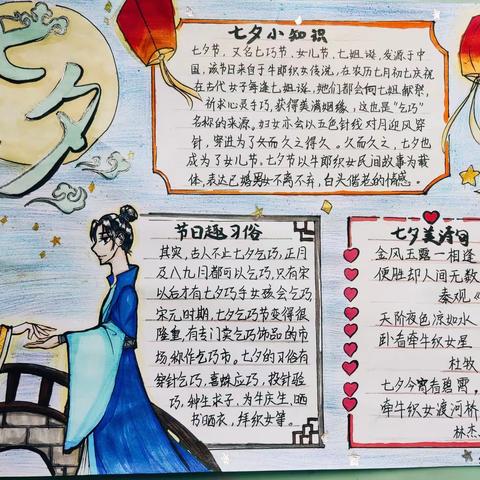 七夕
七夕小知识
七夕节,又名七巧节、女儿节、七姐诞,发源于中
国,该节日来自于牛郎织女传说,在农历七月初七庆祝
在古代女子每逢七姐诞,她们都会向七姐献祭,
祈求心灵手巧,获得美满姻缘,这也是“乞巧”
名称的来源。妇女亦会以五色针线对月迎风穿
针,穿进为了久而久之得久。久而久之,七夕也
成为了女儿节。七夕节以牛郎织女民间故事为载
体,表达已婚男女不离不弃,白头偕老的情感。
节日趣习俗
其实,古人不止七夕乞巧,正月
及八九月都可以乞巧,只有宋
以后才有七夕巧手女孩会乞巧,
宋元时期,七夕乞巧节变得很
隆重,有专门卖乞巧饰品的市
场,称作乞巧市。七夕的习俗有
穿针乞巧,喜蛛应巧,投针验
巧,种生求子,为牛庆生、晒
书晒衣,拜织女等。
七夕美诗句
金风玉露一相逢
便胜却人间无数
秦观《
天阶夜色凉如水
卧看牵牛织女星
杜牧
七夕今宵看碧霄
牵牛织女渡河桥
林杰